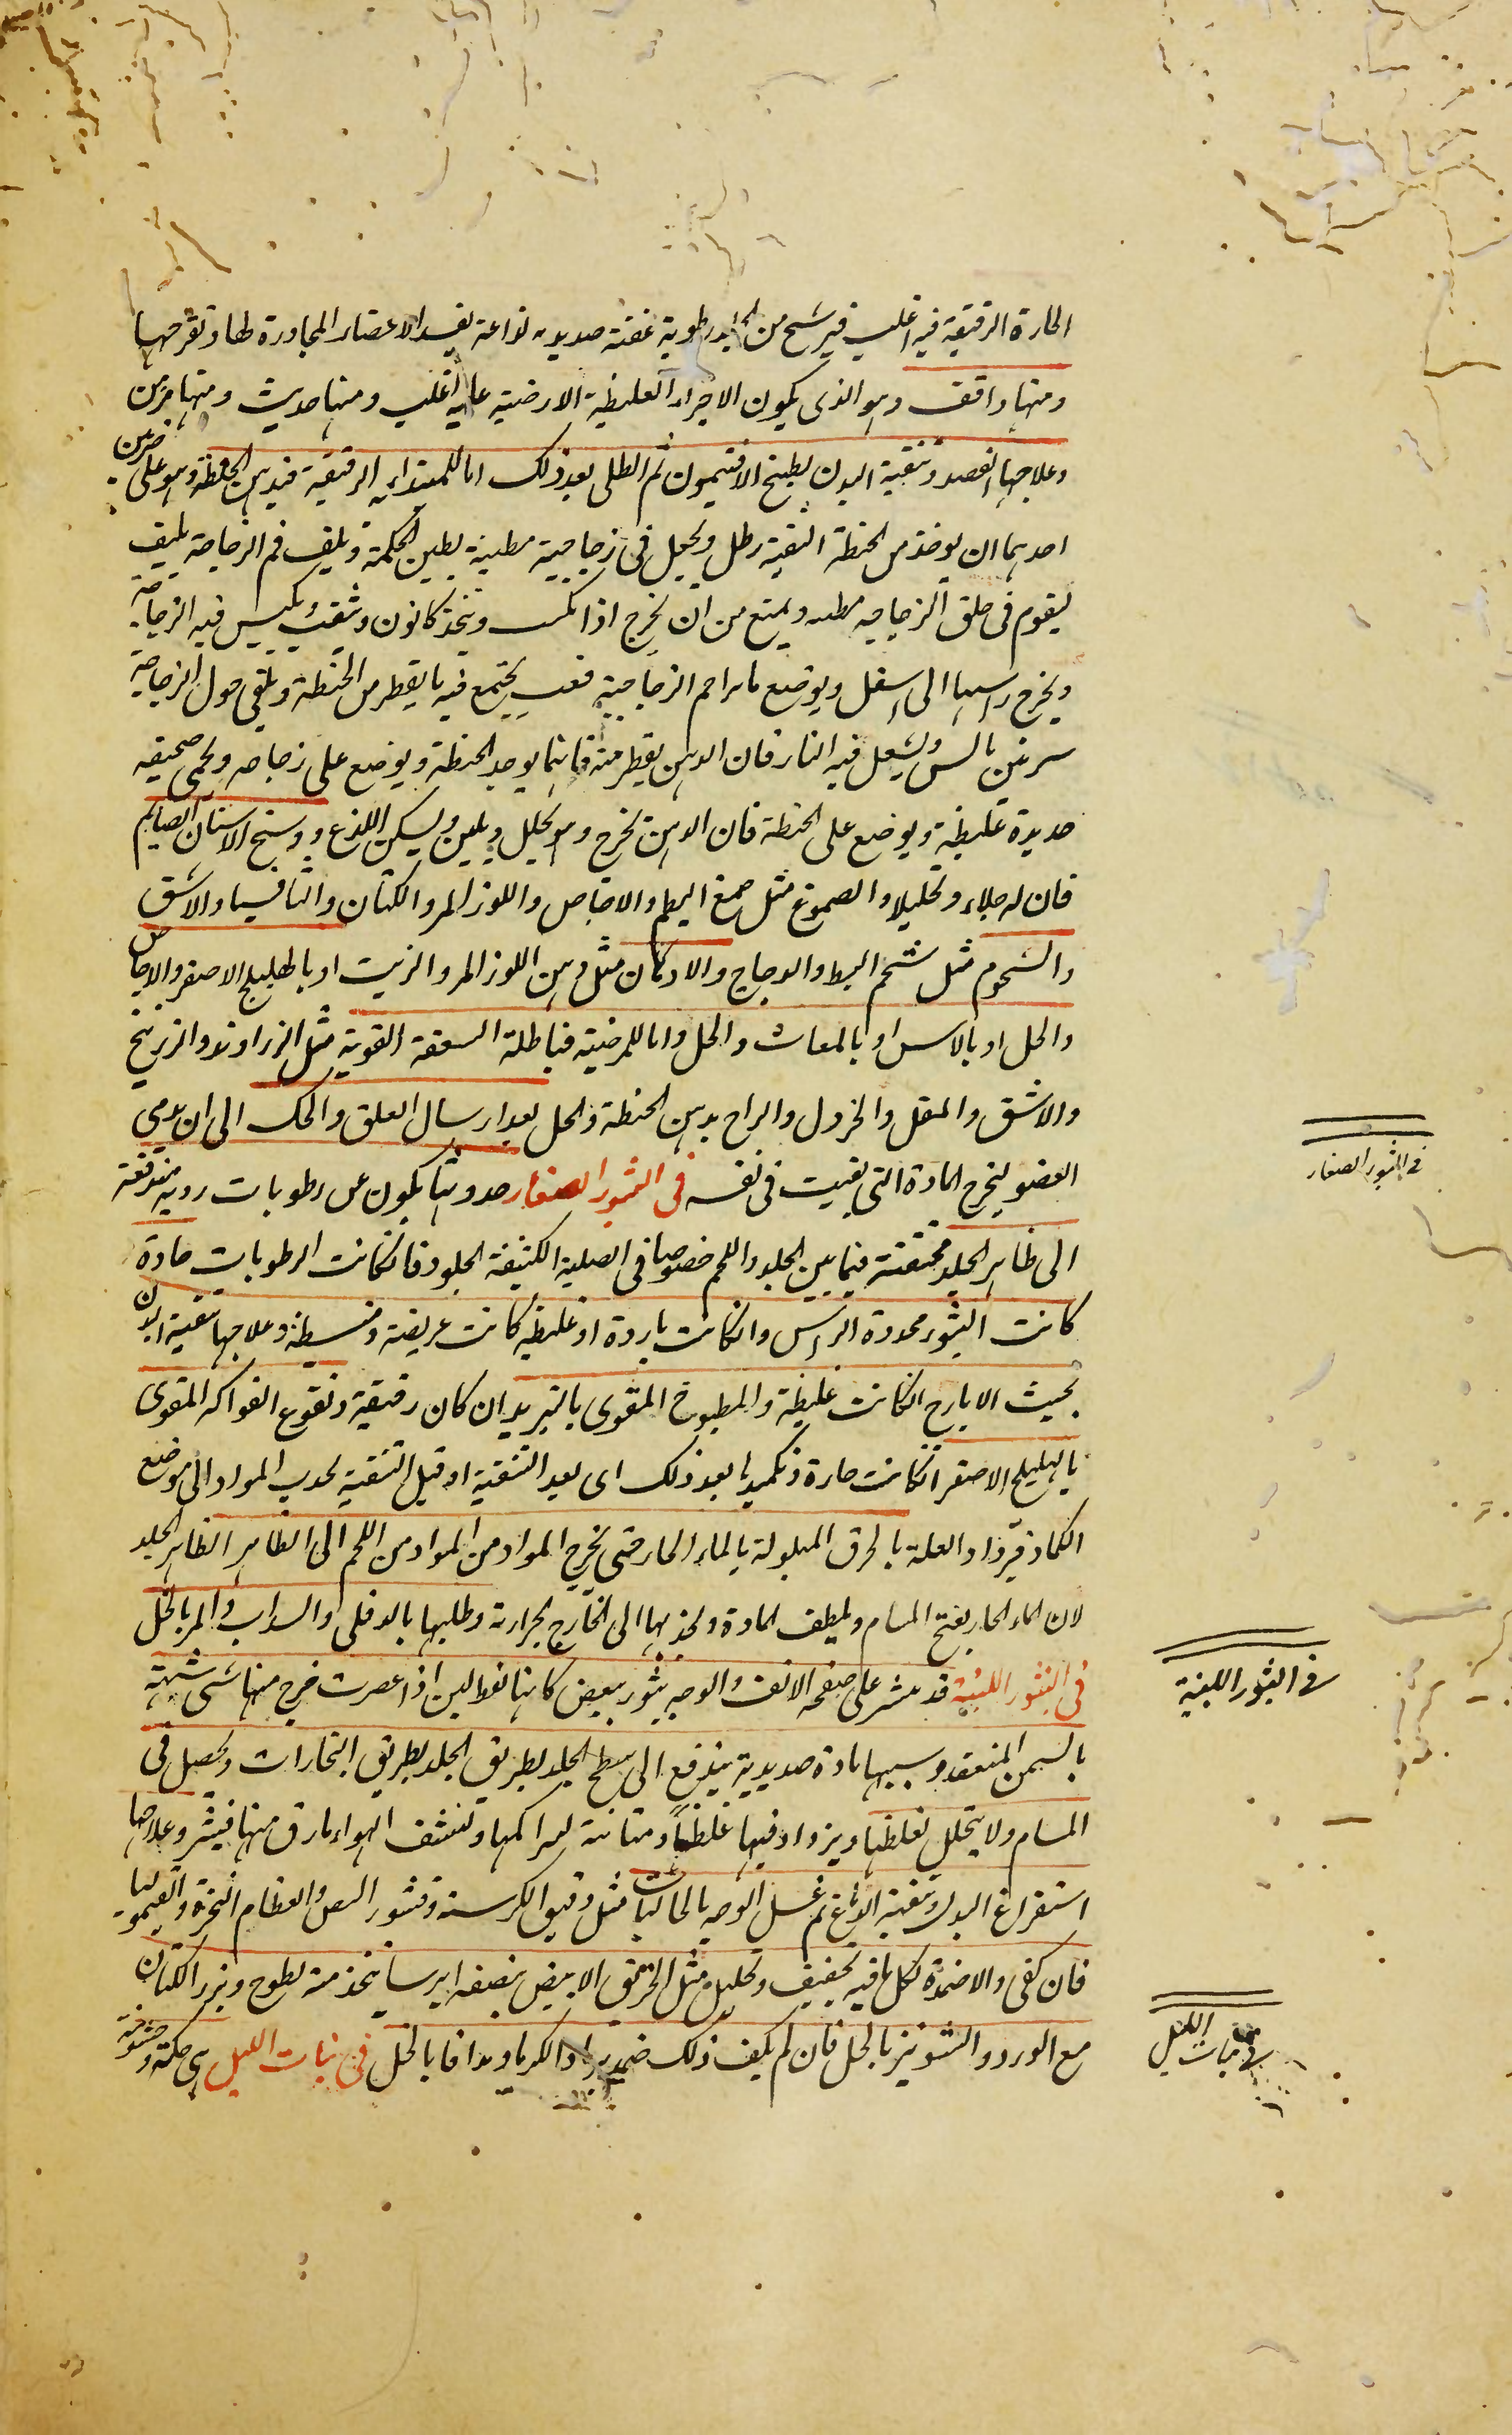 الحارة الرقيقة فيه اغلب فيرشح من الجلد رطوبة عفنة صديدية لذاعة يفسد الاعضاء المجاورة لها وتقرحها
ومنها واقف وهو الذى يكون الاجزاء الغليظة الارضية عليه اغلب ومنها حديث ومنها مزمن
وعلاجها الفصد وتنقية البدن بطبخ الافتيمون ثم الطلى بعد ذلك اما للمبتداية الرقيقة فبدهن الحنطة وهو على ضربين
احدهما ان يوخذ من الحنطة النقية رطل ويجعل فى زجاجية مطينة بطين الحكمة ويلف فم الزجاجة بليف
ليقوم فى حلق الزجاجه ويمنع من ان يخرج اذا نكس ويتخذ كانون وثقب يكبس فيه الزجاجة
ويخرج راسها الى اسفل ويوضع فم الزجاجية قعب يجتمع فيه ما يقطر من الحنطة ويلقى حول الزجاجة
سرقين يابس ويشعل فيه النار فان الدهن يقطر منه ثانيهما يوخذ الحنطة ويوضع على زجاجه ويحمى صحيفه
حديدة غليظة ويوضع على الحنطة فان الدهن يخرج وهو يحلل ويلين ويسكن اللذع ووسخ الاسنان الصايم
فان له جلاء وتحليلا والصموغ مثل صمغ البطم والاجاص واللوز المر والكتان والثافسيا والاشق
والشحوم مثل شحم البط والدجاج والادهان مثل دهن اللوز المر والزيت او بالهليلج الاصفر والاجاص
والخل او بالاس او بالمغاث والخل واما للمرضية فباطلة السعفة القوية مثل الزراوند والزرنيخ
والاشق والمقل والخردل والزاج بدهن الحنطة والخل بعد ارسال العلق والحك الى ان يدمى
العضو ليخرج المادة التى بقيت فى نفسه فى البثور الصغار حدوثها يكون عن رطوبات ردية مندفعة
الى ظاهر الجلد محتقنة فيما بين الجلد واللحم خصوصا فى الصلبة الكثيفة الجلود فانكانت الرطوبات حادة
كانت البثور محدودة الراس وانكانت باردة او غليظة كانت عريضة ومنبسطة وعلاجها تنقية البدن
بحيث الايارج انكانت غليظة والمطبوخ المقوى بالتربد ان كان رقيقة ونقوع الفواكه المقوى
بالهليلج الاصفر انكانت حارة وتكميدها بعد ذلك اى بعد التنقية او قبل التنقية يجذب المواد الى موضع
الكماد فيزداد العلة بالخرق المبلولة بالماء الحار حتى يخرج المواد من المواد من اللحم الى الظاهر الظاهر الجلد
لان الماء الحار يفتح المسام ويلطف المادة ويجذبها الى الخارج بحرارته وطليها بالدفلى والسداب والمر بالخل
فى البثور اللبنية قد ينشر على صفحه الانف والوجه بثور بيض كانها نقط لبن اذا عصرت خرج منها شى شبيه
بالسمن المنعقد وسببها مادة صديدية يندفع الى سطح الجلد بطريق الجلد بطريق البخارات ويحصل فى
المسام ولا يتحلل لغلظها ويزداد فيها غلظا ومتانة لتراكمها وتنشف الهواء مارق منها فيتبثر وعلاجها
استفراغ البدن وتنقية الدماغ ثم غسل الوجه بالجاليات مثل دقيق الكرسنه وقشور البيض والعظام النخرة والقيموليا
فان كفى والاضمدة بكل ما فيه تجفيف وتحليل مثل الخربق الابيض بنصفه ايرسا يتخذ منه لطوخ وبزر الكتان
مع الورد والشونيز بالخل فان لم يكف ذلك ضمد الكرماويد افا بالخل فى بنات الليل هى حكة وخشونة
فى البثور الصغار
فى البثور اللبنية
فى بنات الليل